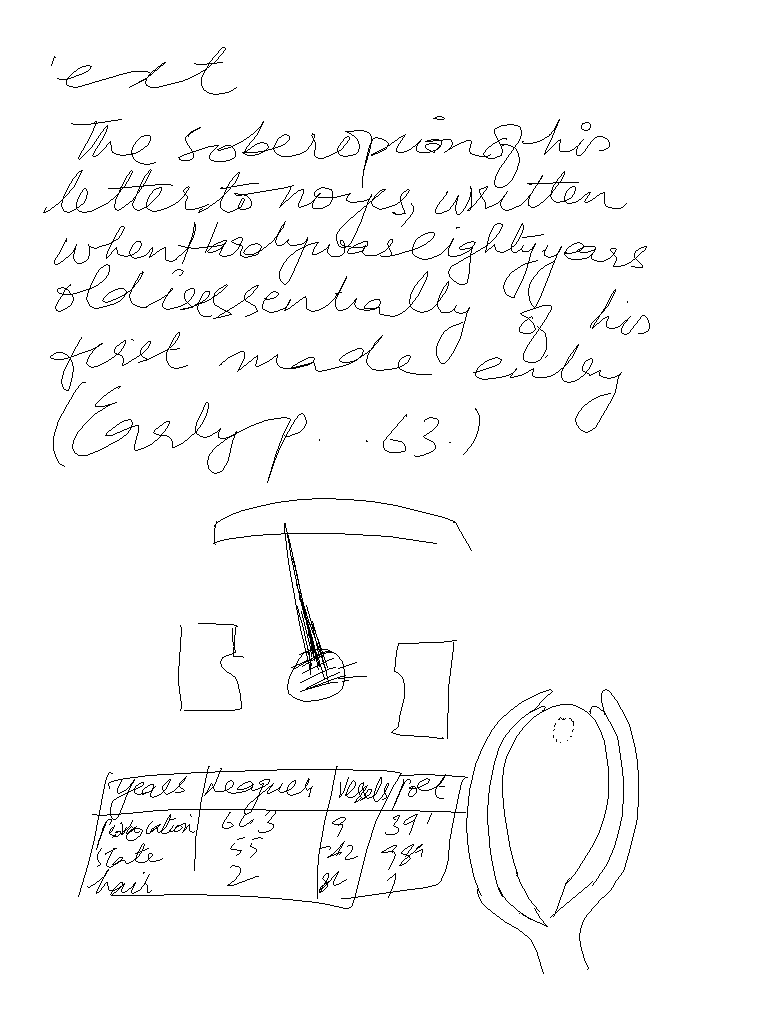 The sober opinion of his
letter to noyes, written
when Hardy was eighty years
old is essentially of his
first made entry
(Early p. . . 63.)
Years Leagues Vessels Poet
provocation 663 9 39
state 55 989
hair 2 1